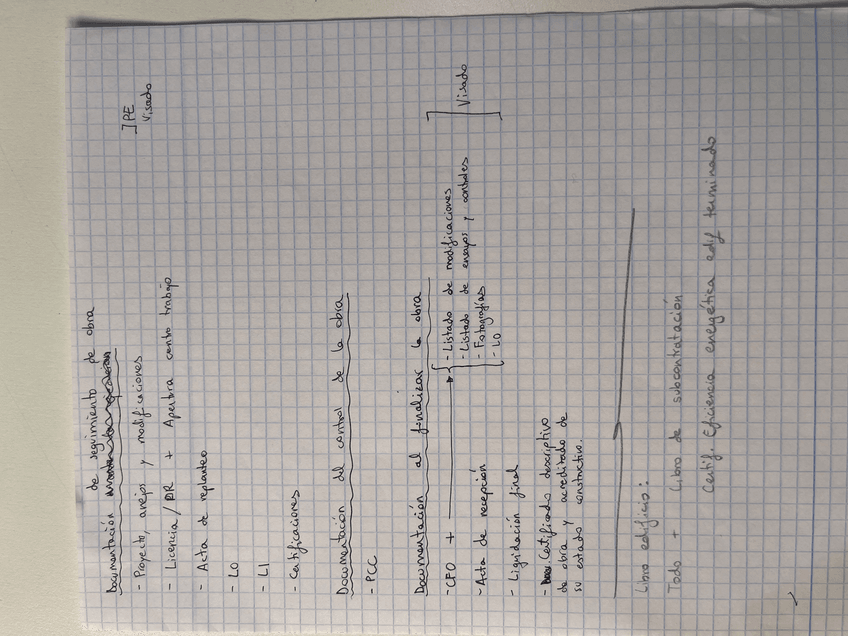 de seguimiento de obra
Documentación
- Proyecto, anejos y modificaciones
]PE
Visado
- Licencia / DR + Apertura centro trabajo
- Acta de replanteo
- LO
- LI
- Certificaciones
Documentación del control de la obra
- PCC
Documentación al finalizar la obra
- CFO +
- Listado de modificaciones
- Listado de ensayos y controles
- Fotografías
- LO
Visado
- Acta de recepción
- Liquidación final
- Certificado descriptivo
de obra y acreditado de
su estado constructivo.
Libro edificio:
Todo + Libro de subcontratación
Certif. Eficiencia energética edif terminado